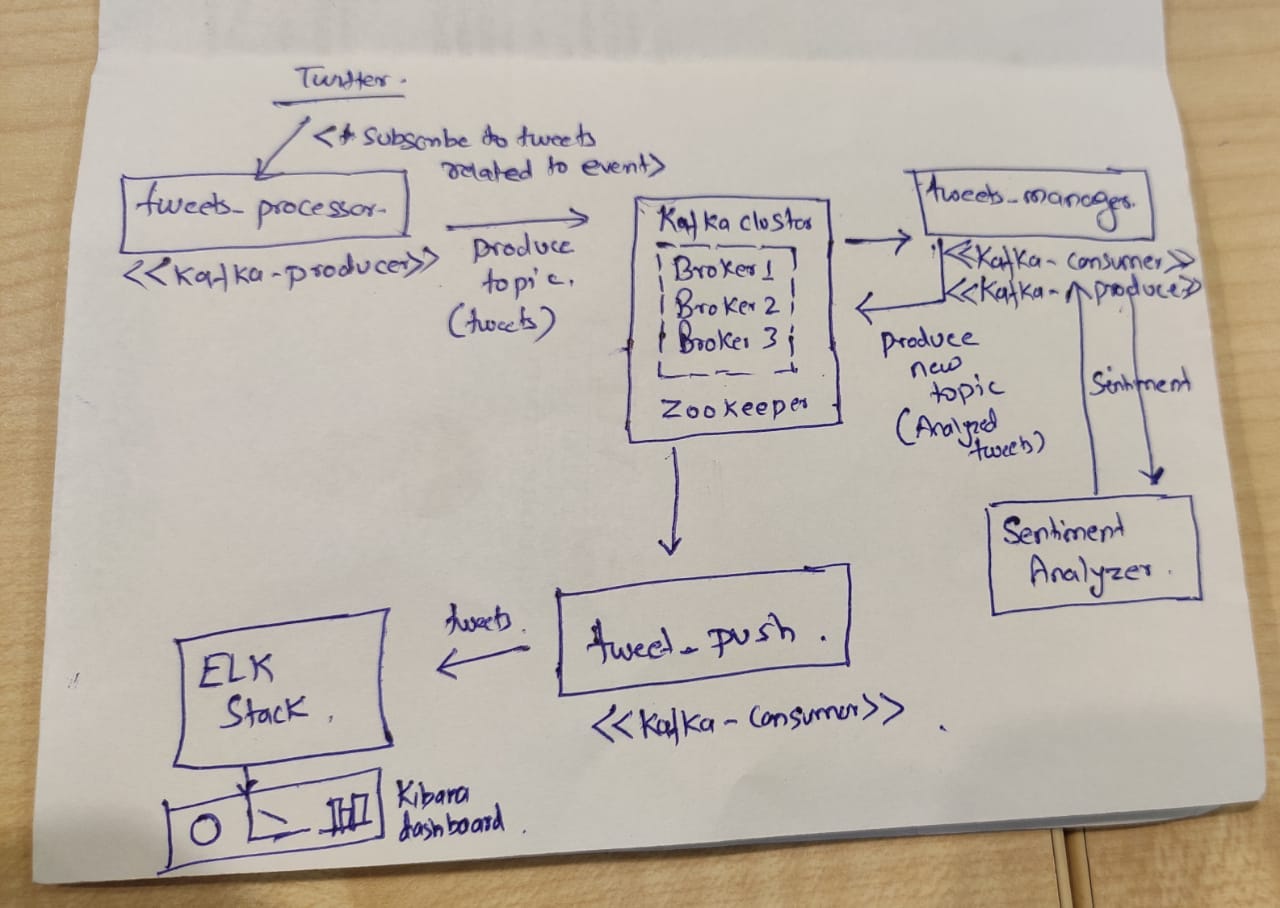 Twitter.
<* Subscribe to tweets
related to event>
tweets_processor.
<<Kafka-producer>>
produce
topic.
(tweets)
Kafka cluster
Broker 1
Broker 2
Broker 3
Zookeeper
tweets_manager.
<<Kafka-consumer>>
<<Kafka-produce>>
produce
new
topic
(Analyzed
tweets)
Sentiment
Sentiment
Analyzer.
tweet_push.
<<Kafka-consumer>>
tweets.
ELK
Stack.
Kibana
dashboard.